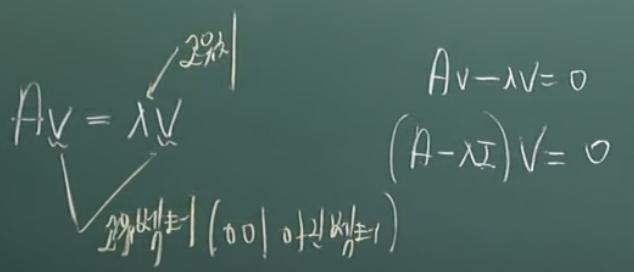 고윳값
Av = λv
고유벡터 (0이 아닌 벡터)
Av - λv = 0
(A - λI) v = 0